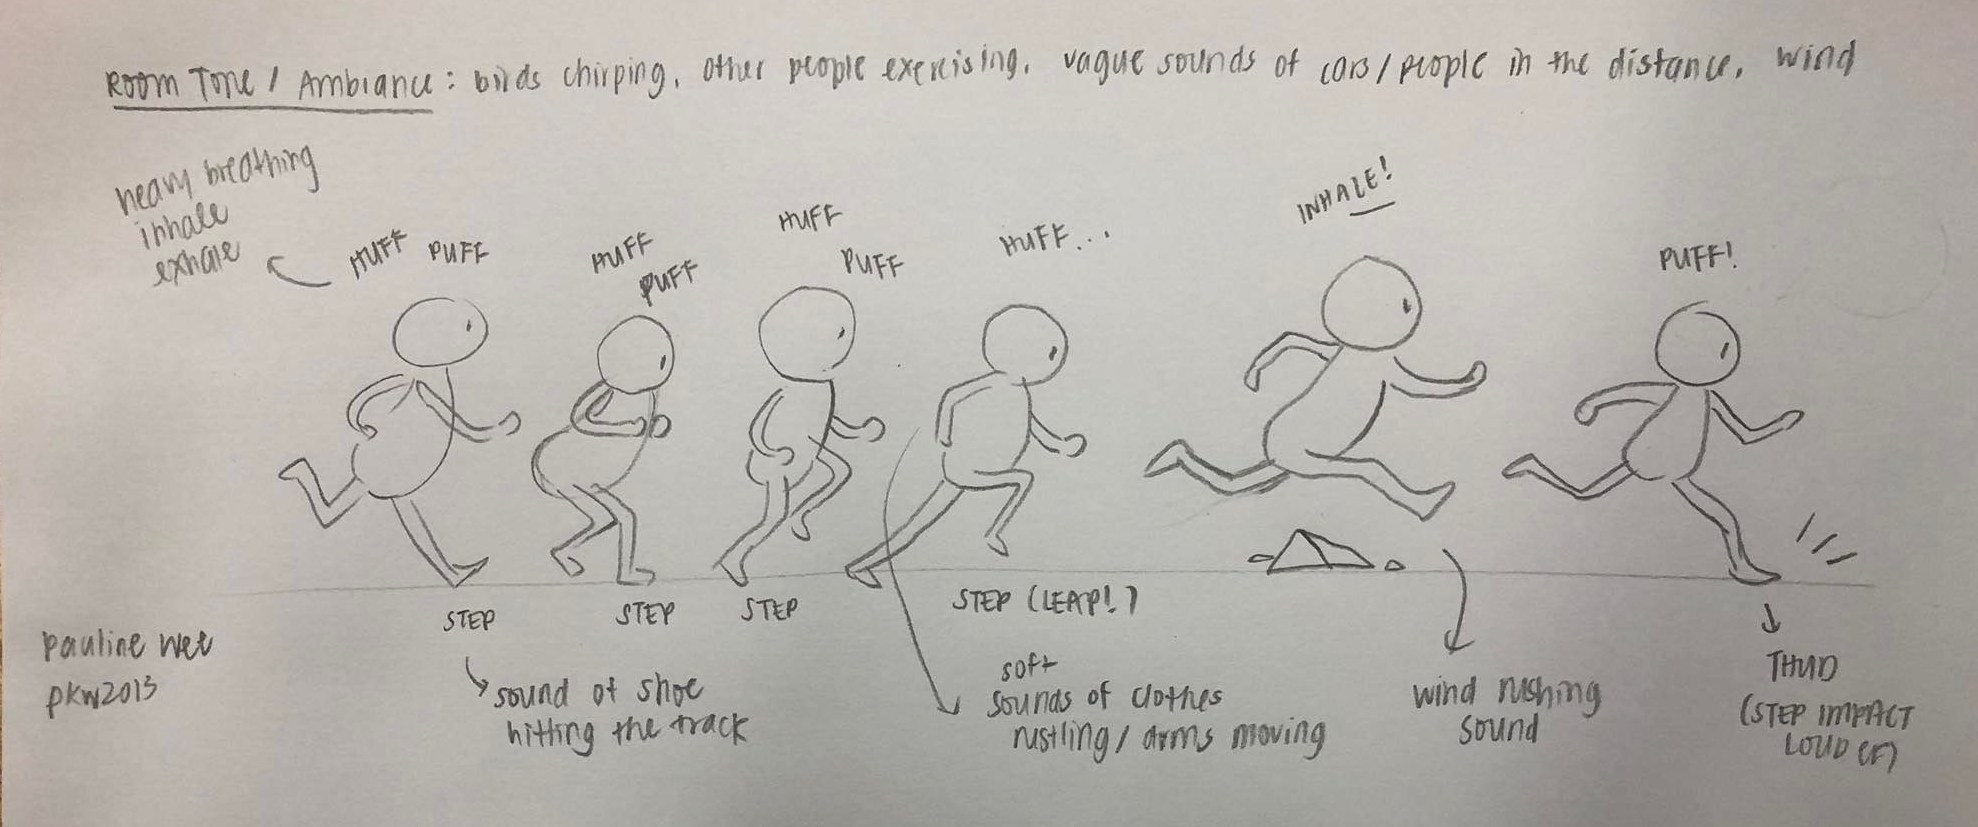 Room Tone / Ambiance : birds chirping, other people exercising, vague sounds of cars/people in the distance, wind
heavy breathing
inhale
exhale
HUFF PUFF
HUFF
PUFF
HUFF
PUFF
HUFF...
INHALE!
PUFF!
STEP
STEP
STEP
STEP (LEAP!)
sound of shoe
hitting the track
soft
sounds of clothes
rustling/arms moving
wind rushing
sound
THUD
(STEP IMPACT
LOUDER)
pauline wee
pkw2013